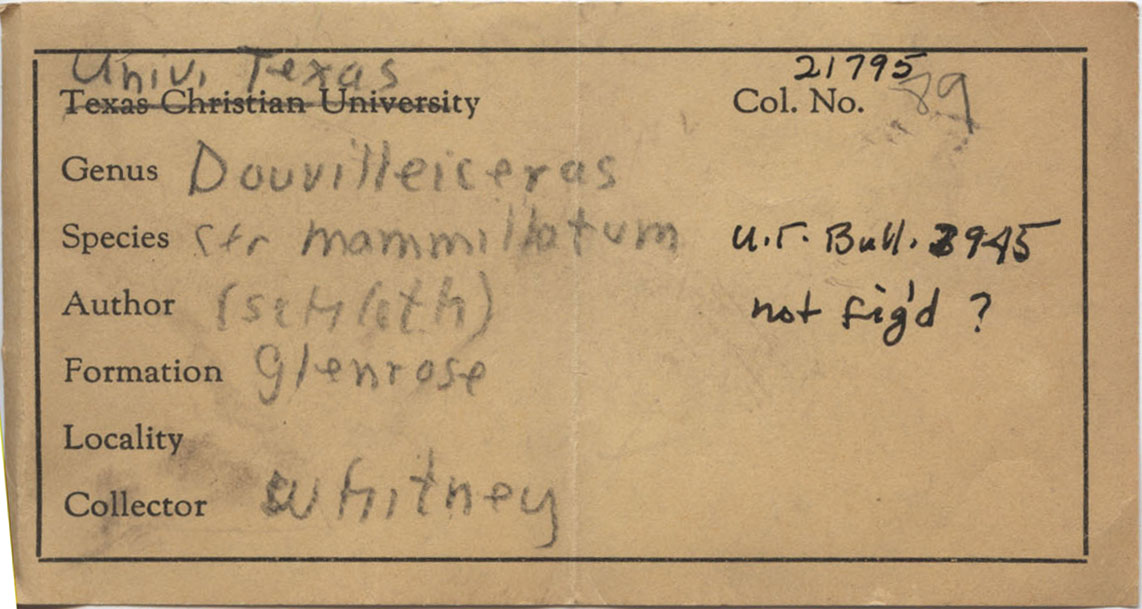 Univ. Texas
21795
Texas Christian University
Col. No. 89
Genus Douvilleiceras
Species cfr mammillatum
U.T. Bull. 3945
Author (Schloth)
not fig'd ?
Formation Glenrose
Locality
Collector Whitney